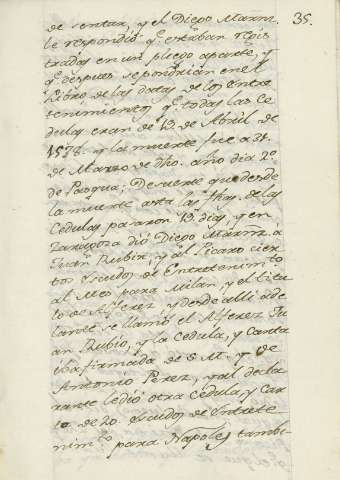 35.
de sentar, y el Diego Marnz.
le respondió qe. estaban regis
trados en un pliego aparte, y
qe. despues se pondrian en el
Libro de las datas de los Entre
tenimientos, qe. todas las Ce
dulas eran de 13. de Abril de
1578. y la muerte fue a 31.
de Marzo de dho. año dia 2o.
de Pasqua; De suerte que desde
la muerte asta las fhas. de las
Cedulas pasaron 13. dias, y en
Zaragoza dió Diego Marnz. a
Juan Rubio, y al Picaro cier
tos escudos de Entretenimto.
al Mes para Milan, y el titu
lo de Alferez, y desde alli ade
lante se llamó el Alferez Ju
an Rubio, y la Cedula, y Carta
iba firmada de S. M. y de
Antonio Perez, y al decla
rante le dió otra Cedula, y Car
ta de 20. escudos de Entrete
nimto. para Napoles, tambi